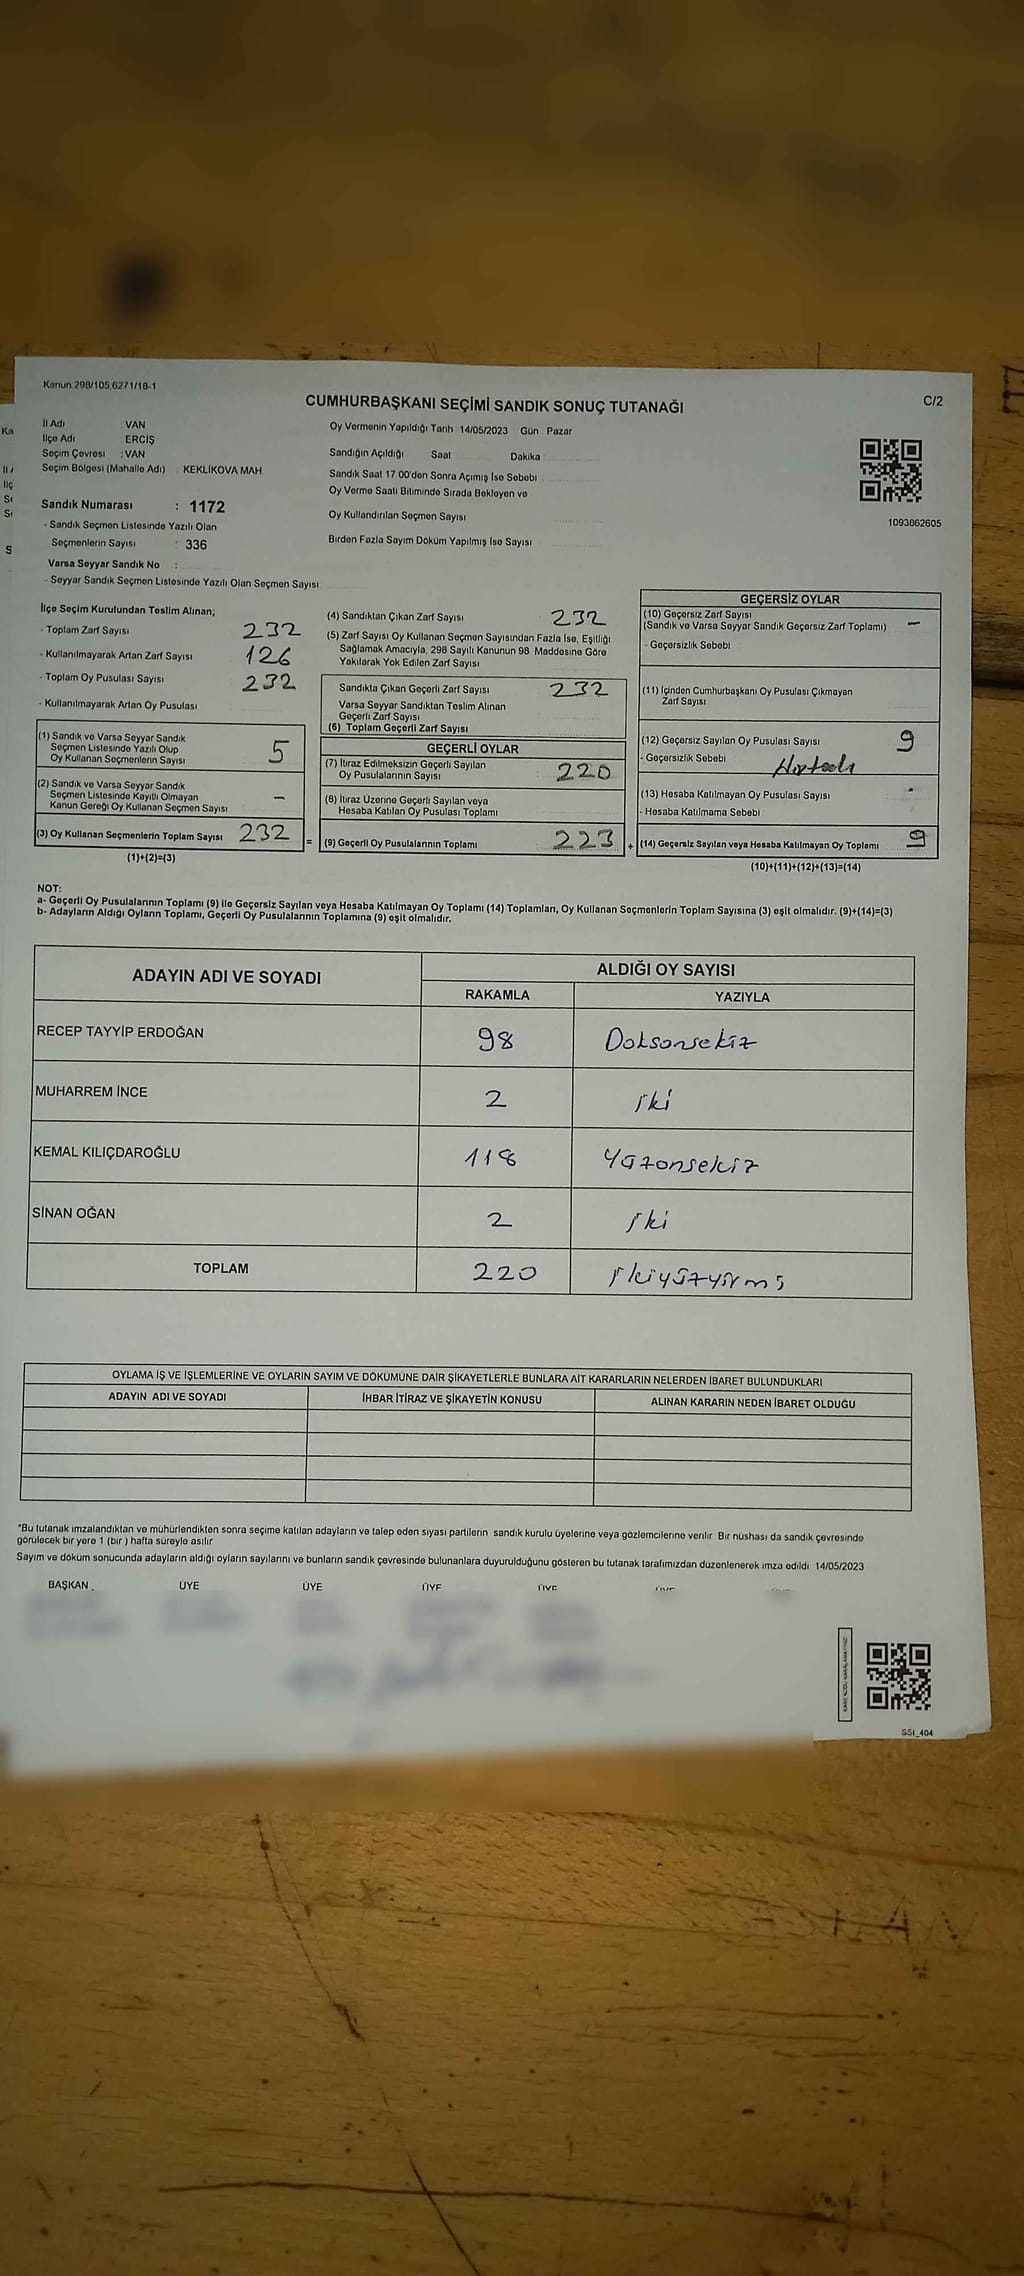 Kanun 298/105 6271/18-1
C/2
CUMHURBAŞKANI SEÇİMİ SANDIK SONUÇ TUTANAĞI
İl Adı VAN
İlçe Adı : ERCİŞ
Seçim Çevresi : VAN
Seçim Bölgesi (Mahalle Adı) : KEKLİKOVA MAH
Sandık Numarası : 1172
- Sandık Seçmen Listesinde Yazılı Olan
Seçmenlerin Sayısı : 336
Varsa Seyyar Sandık No :
- Seyyar Sandık Seçmen Listesinde Yazılı Olan Seçmen Sayısı
Oy Vermenin Yapıldığı Tarih 14/05/2023 Gün Pazar
Sandığın Açıldığı Saat Dakika
Sandık Saat 17 00'den Sonra Açımış İse Sebebi
Oy Verme Saati Bitiminde Sırada Bekleyen ve
Oy Kullandırılan Seçmen Sayısı
Birden Fazla Sayım Döküm Yapılmış İse Sayısı
1093862605
İlçe Seçim Kurulundan Teslim Alınan;
- Toplam Zarf Sayısı 232
- Kullanılmayarak Artan Zarf Sayısı 126
- Toplam Oy Pusulası Sayısı 232
- Kullanılmayarak Artan Oy Pusulası
(1) Sandık ve Varsa Seyyar Sandık
Seçmen Listesinde Yazılı Olup
Oy Kullanan Seçmenlerin Sayısı 5
(2) Sandık ve Varsa Seyyar Sandık
Seçmen Listesinde Kayıtlı Olmayan
Kanun Gereği Oy Kullanan Seçmen Sayısı -
(3) Oy Kullanan Seçmenlerin Toplam Sayısı 232 =
(1)+(2)=(3)
(4) Sandıktan Çıkan Zarf Sayısı 232
(5) Zarf Sayısı Oy Kullanan Seçmen Sayısından Fazla İse, Eşitliği
Sağlamak Amacıyla, 298 Sayılı Kanunun 98 Maddesine Göre
Yakılarak Yok Edilen Zarf Sayısı
Sandıkta Çıkan Geçerli Zarf Sayısı 232
Varsa Seyyar Sandıktan Teslim Alınan
Geçerli Zarf Sayısı
(6) Toplam Geçerli Zarf Sayısı
GEÇERLİ OYLAR
(7) İtiraz Edilmeksizin Geçerli Sayılan
Oy Pusulalarının Sayısı 220
(8) İtiraz Üzerine Geçerli Sayılan veya
Hesaba Katılan Oy Pusulası Toplamı
(9) Geçerli Oy Pusulalarının Toplamı 223 +
GEÇERSİZ OYLAR
(10) Geçersiz Zarf Sayısı
(Sandık ve Varsa Seyyar Sandık Geçersiz Zarf Toplamı) -
- Geçersizlik Sebebi
(11) İçinden Cumhurbaşkanı Oy Pusulası Çıkmayan
Zarf Sayısı
(12) Geçersiz Sayılan Oy Pusulası Sayısı 9
- Geçersizlik Sebebi
(13) Hesaba Katılmayan Oy Pusulası Sayısı -
- Hesaba Katılmama Sebebi
(14) Geçersiz Sayılan veya Hesaba Katılmayan Oy Toplamı 9
(10)+(11)+(12)+(13)=(14)
NOT:
a- Geçerli Oy Pusulalarının Toplamı (9) ile Geçersiz Sayılan veya Hesaba Katılmayan Oy Toplamı (14) Toplamları, Oy Kullanan Seçmenlerin Toplam Sayısına (3) eşit olmalıdır. (9)+(14)=(3)
b- Adayların Aldığı Oyların Toplamı, Geçerli Oy Pusulalarının Toplamına (9) eşit olmalıdır.
ADAYIN ADI VE SOYADI ALDIĞI OY SAYISI
RAKAMLA YAZIYLA
RECEP TAYYİP ERDOĞAN 98 Doksonsekiz
MUHARREM İNCE 2 iki
KEMAL KILIÇDAROĞLU 118 Yüzonsekiz
SİNAN OĞAN 2 iki
TOPLAM 220 ikiyüzyirmi
OYLAMA İŞ VE İŞLEMLERİNE VE OYLARIN SAYIM VE DÖKÜMÜNE DAİR ŞİKAYETLERLE BUNLARA AİT KARARLARIN NELERDEN İBARET BULUNDUKLARI
ADAYIN ADI VE SOYADI İHBAR İTİRAZ VE ŞİKAYETİN KONUSU ALINAN KARARIN NEDEN İBARET OLDUĞU
*Bu tutanak imzalandıktan ve mühürlendikten sonra seçime katılan adayların ve talep eden siyasi partilerin sandık kurulu üyelerine veya gözlemcilerine verilir Bir nüshası da sandık çevresinde
görülecek bir yere 1 (bir) hafta süreyle asılır
Sayım ve döküm sonucunda adayların aldığı oyların sayılarını ve bunların sandık çevresinde bulunanlara duyurulduğunu gösteren bu tutanak tarafımızdan düzenlenerek imza edildi 14/05/2023
BAŞKAN ÜYE ÜYE ÜYE ÜYE
SSI_404